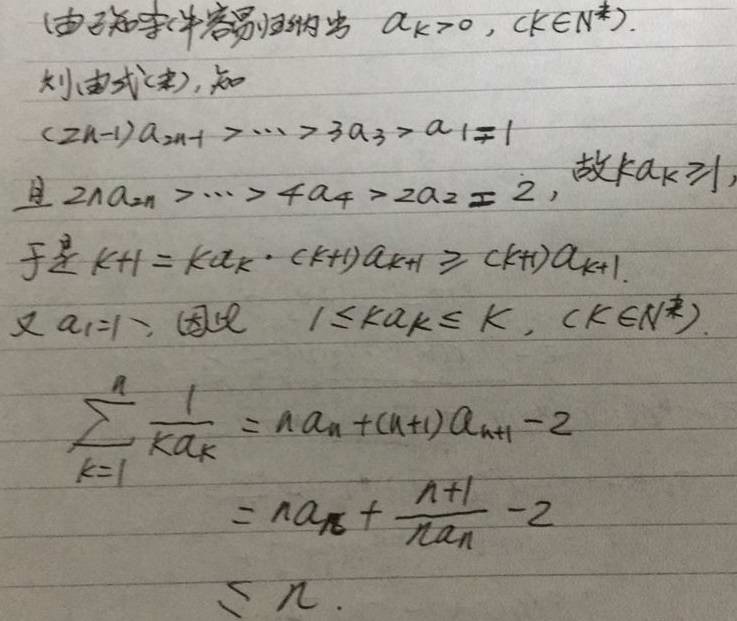 (由已知条件容易归纳出 aₖ>0, (k∈N*).
则由式(*), 知
(2n-1)a₂ₙ₋₁ > ⋯ > 3a₃ > a₁ = 1
且 2na₂ₙ > ⋯ > 4a₄ > 2a₂ = 2, 故kaₖ ≥ 1,
于是 k+1 = kaₖ · (k+1)aₖ₊₁ ≥ (k+1)aₖ₊₁.
又 a₁=1、因此 1 ≤ kaₖ ≤ k, (k∈N*).
∑ₖ₌₁ⁿ 1/(kaₖ) = naₙ + (n+1)aₙ₊₁ - 2
= naₙ + (n+1)/(naₙ) - 2
≤ n.